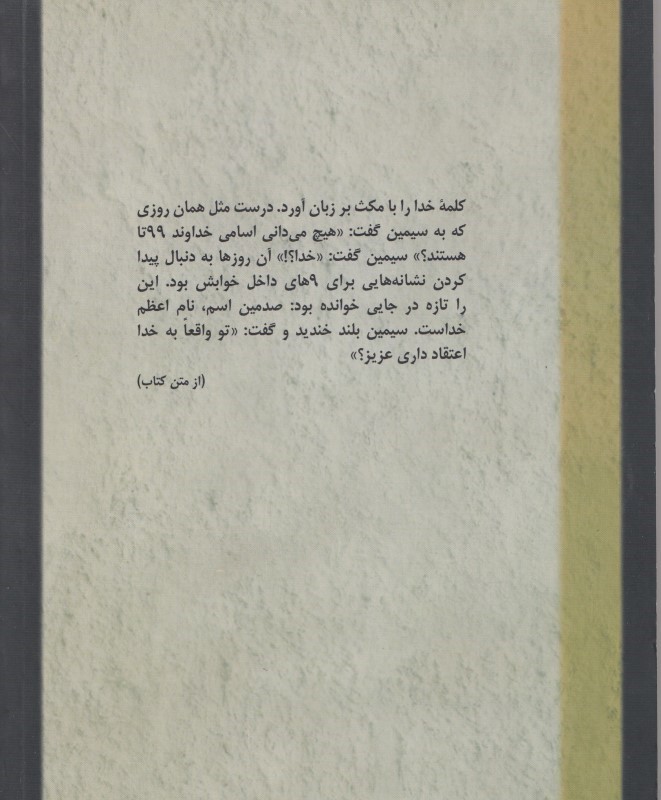 کلمهٔ خدا را با مکث بر زبان آورد. درست مثل همان روزی
که به سیمین گفت: «هیچ می‌دانی اسامی خداوند ۹۹تا
هستند؟» سیمین گفت: «خدا؟!» آن روزها به دنبال پیدا
کردن نشانه‌هایی برای ۹های داخل خوابش بود. این
را تازه در جایی خوانده بود: صدمین اسم، نام اعظم
خداست. سیمین بلند خندید و گفت: «تو واقعاً به خدا
اعتقاد داری عزیز؟»
(از متن کتاب)